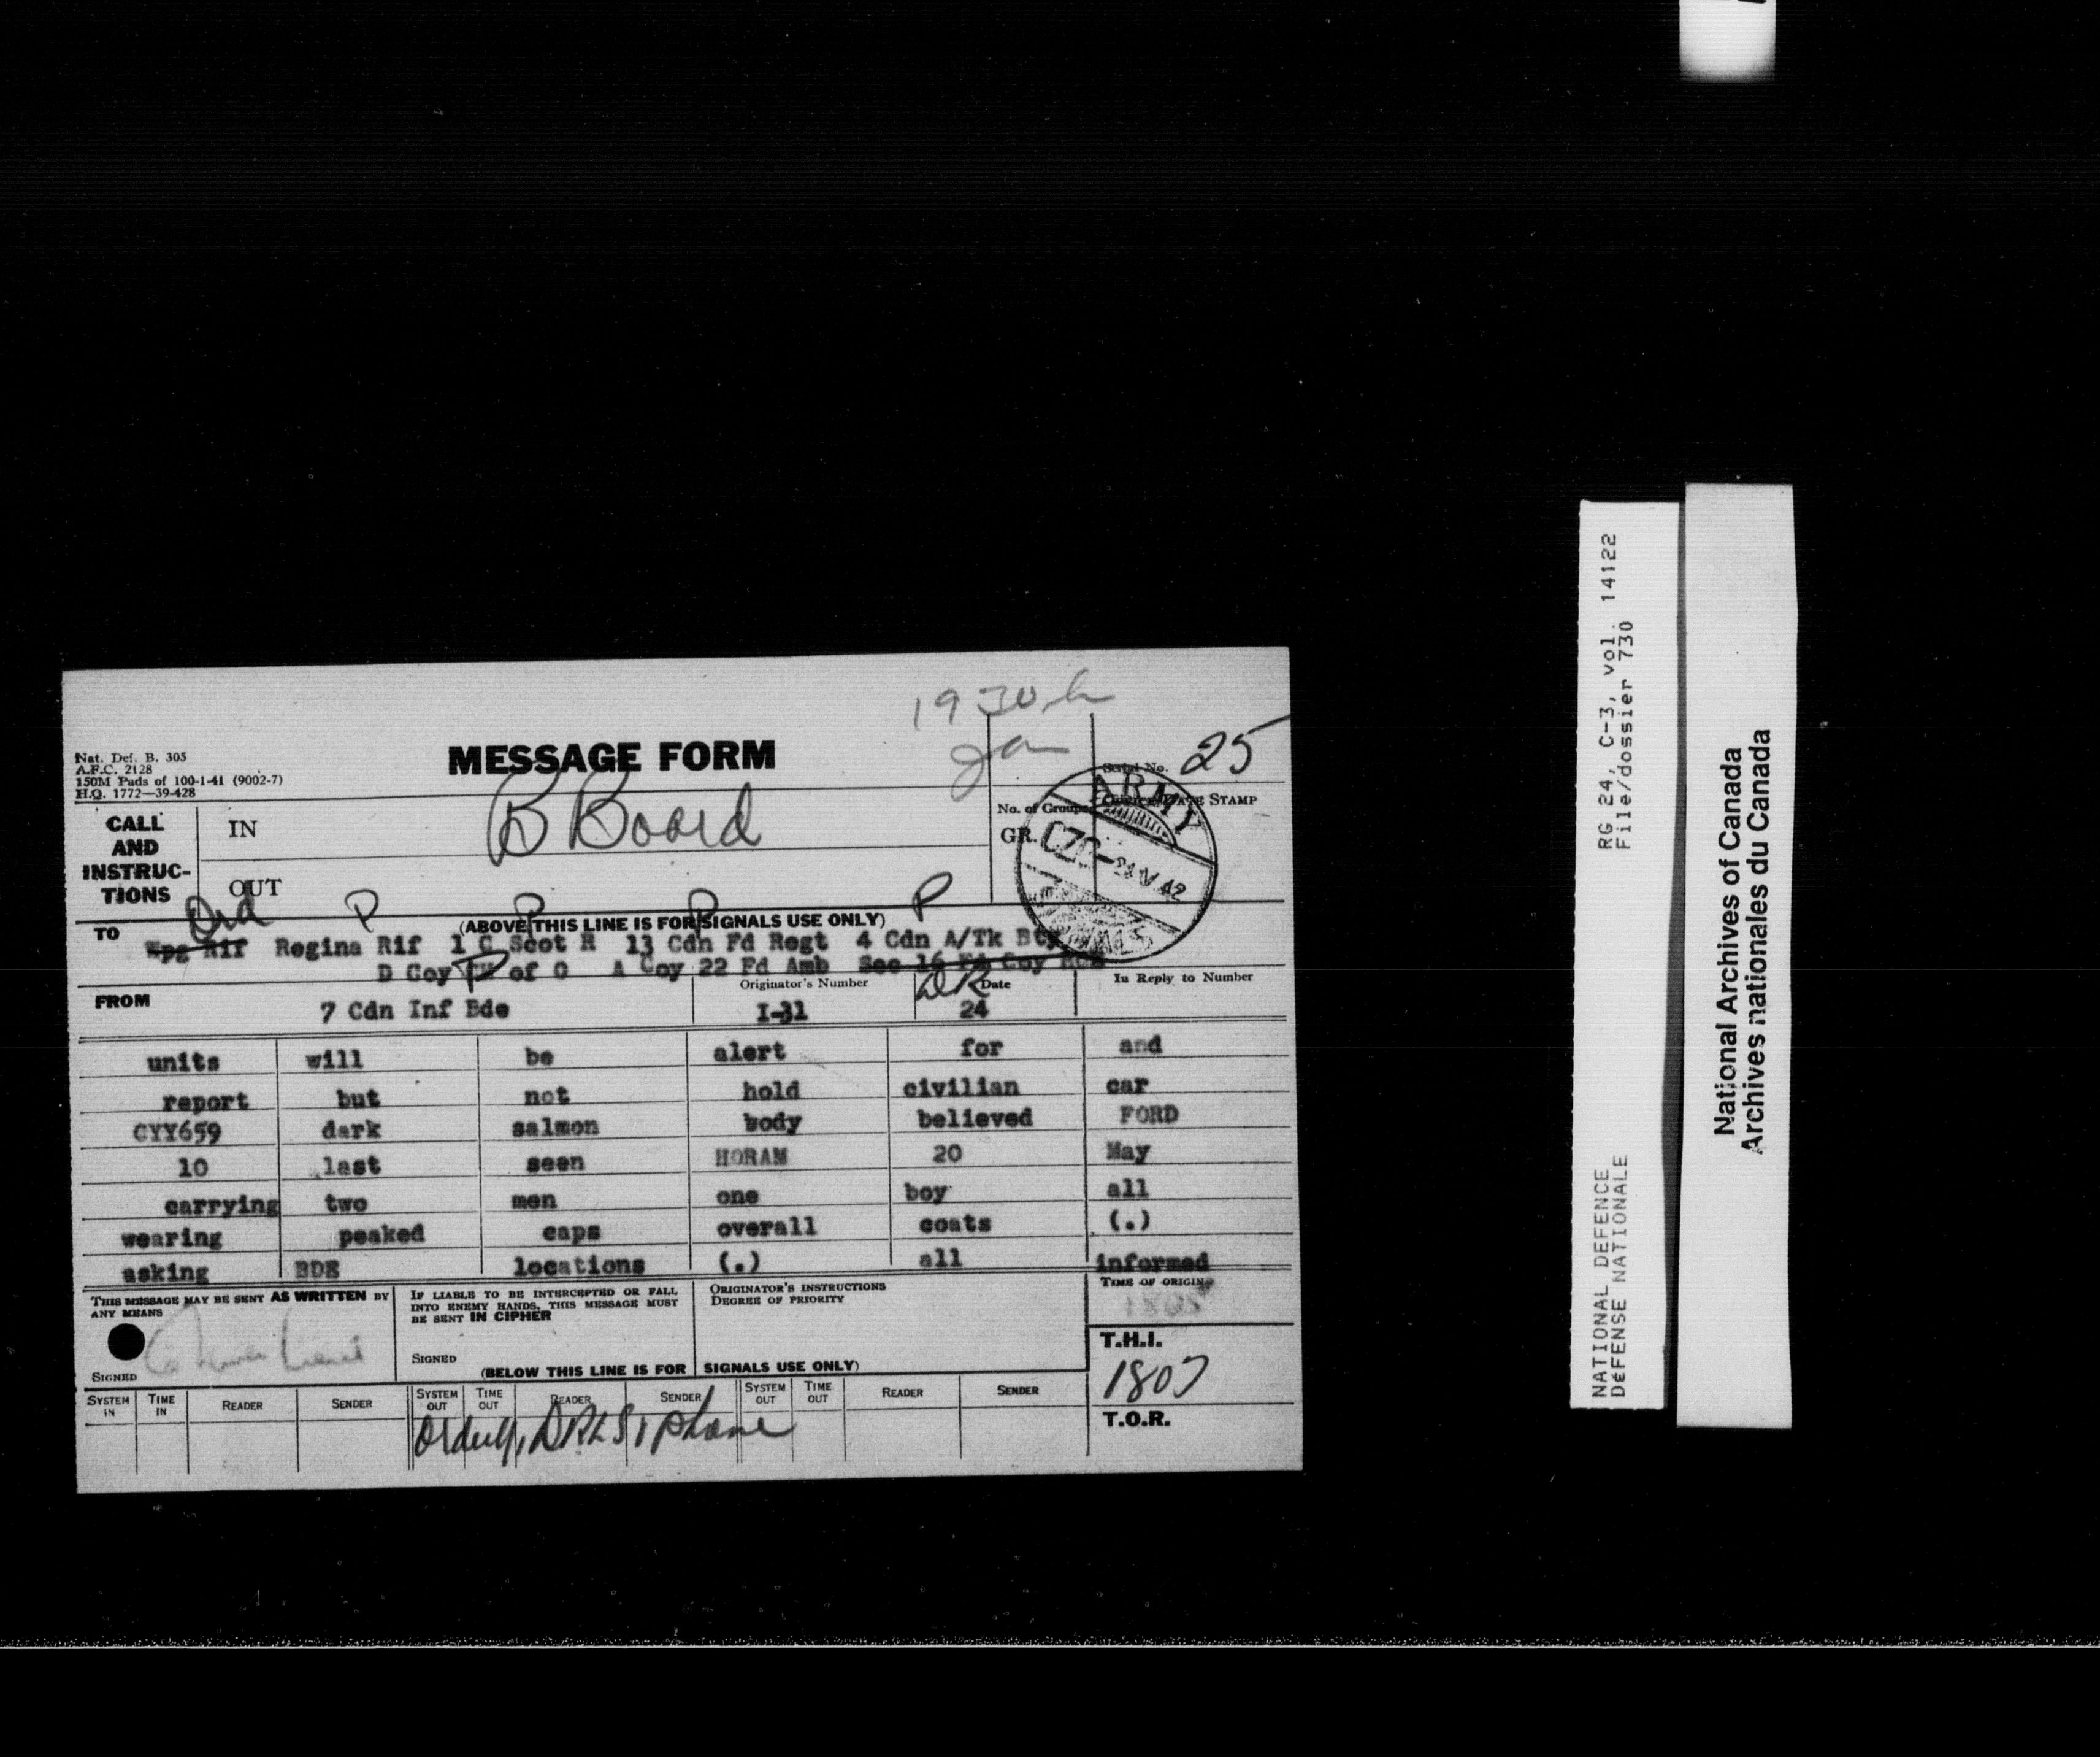 1930h
Nat. Def. B. 305
A.F.C. 2128
150M Pads of 100-1-41 (9002-7)
H.Q. 1772—39-428
MESSAGE FORM
Serial No. 25
CALL AND INSTRUC-TIONS
IN
B Board
No. of Groups
GR.
OFFICE DATE STAMP
ARMY
24 V 42
OUT
Ord P P P P
(ABOVE THIS LINE IS FOR SIGNALS USE ONLY)
TO Wpg Rif Regina Rif 1 C Scot R 13 Cdn Fd Regt 4 Cdn A/Tk Bty
D Coy of O A Coy 22 Fd Amb Sec 16 Fd Coy RCE
FROM 7 Cdn Inf Bde
Originator's Number I-31
DR
Date 24
In Reply to Number
units will be alert for and
report but not hold civilian car
CYY659 dark salmon body believed FORD
10 last seen HORAM 20 May
carrying two men one boy all
wearing peaked caps overall coats (.)
asking BDE locations (.) all informed
THIS MESSAGE MAY BE SENT AS WRITTEN BY ANY MEANS
SIGNED
IF LIABLE TO BE INTERCEPTED OR FALL INTO ENEMY HANDS, THIS MESSAGE MUST BE SENT IN CIPHER
SIGNED
ORIGINATOR'S INSTRUCTIONS
DEGREE OF PRIORITY
TIME OF ORIGIN
1805
T.H.I.
1807
T.O.R.
(BELOW THIS LINE IS FOR SIGNALS USE ONLY)
SYSTEM IN TIME IN READER SENDER SYSTEM OUT TIME OUT READER SENDER SYSTEM OUT TIME OUT READER SENDER
Orderly, DRLS, phone
RG 24, C-3, vol. 14122
File/dossier 730
NATIONAL DEFENCE
DEFENSE NATIONALE
National Archives of Canada
Archives nationales du Canada